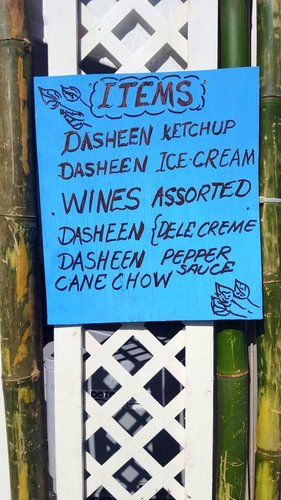 ITEMS
DASHEEN KETCHUP
DASHEEN ICE-CREAM
WINES ASSORTED
DASHEEN {DELE CREME
DASHEEN PEPPER SAUCE
CANE CHOW